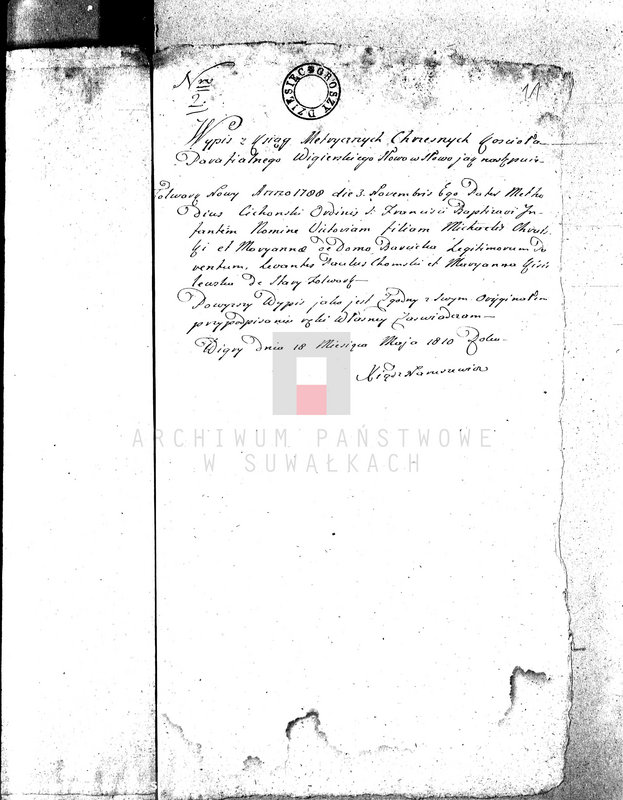 Nro
2
DZIESIĘĆ GROSZY
11
Wypis z Xsiąg Metrycznych Chrzesnych Koscioła
Parafialnego Wigierskiego Słowo w słowo jaq następuie
Folwarq Nowy Anno 1788 die 3. Novembris Ego Pater Metho
dius Cichonski Ordinis S: Francisci Baptizavi In-
fantem Nomine Victoriam filiam Michaelis
et Maryannæ de Domo Legitimorum Pa
rentum, Levantes Paulus Chomski et Maryanna
lewska de Stary Folwarq
Powyższy Wypis jako jest Zgodny z swym Oryginałem
przy podpisaniu ręki własney Zaswiadczam
Wigry dnia 18 Miesiąca Maja 1810 Roku
Xiądz Naruszewicz
ARCHIWUM PAŃSTWOWE
W SUWAŁKACH